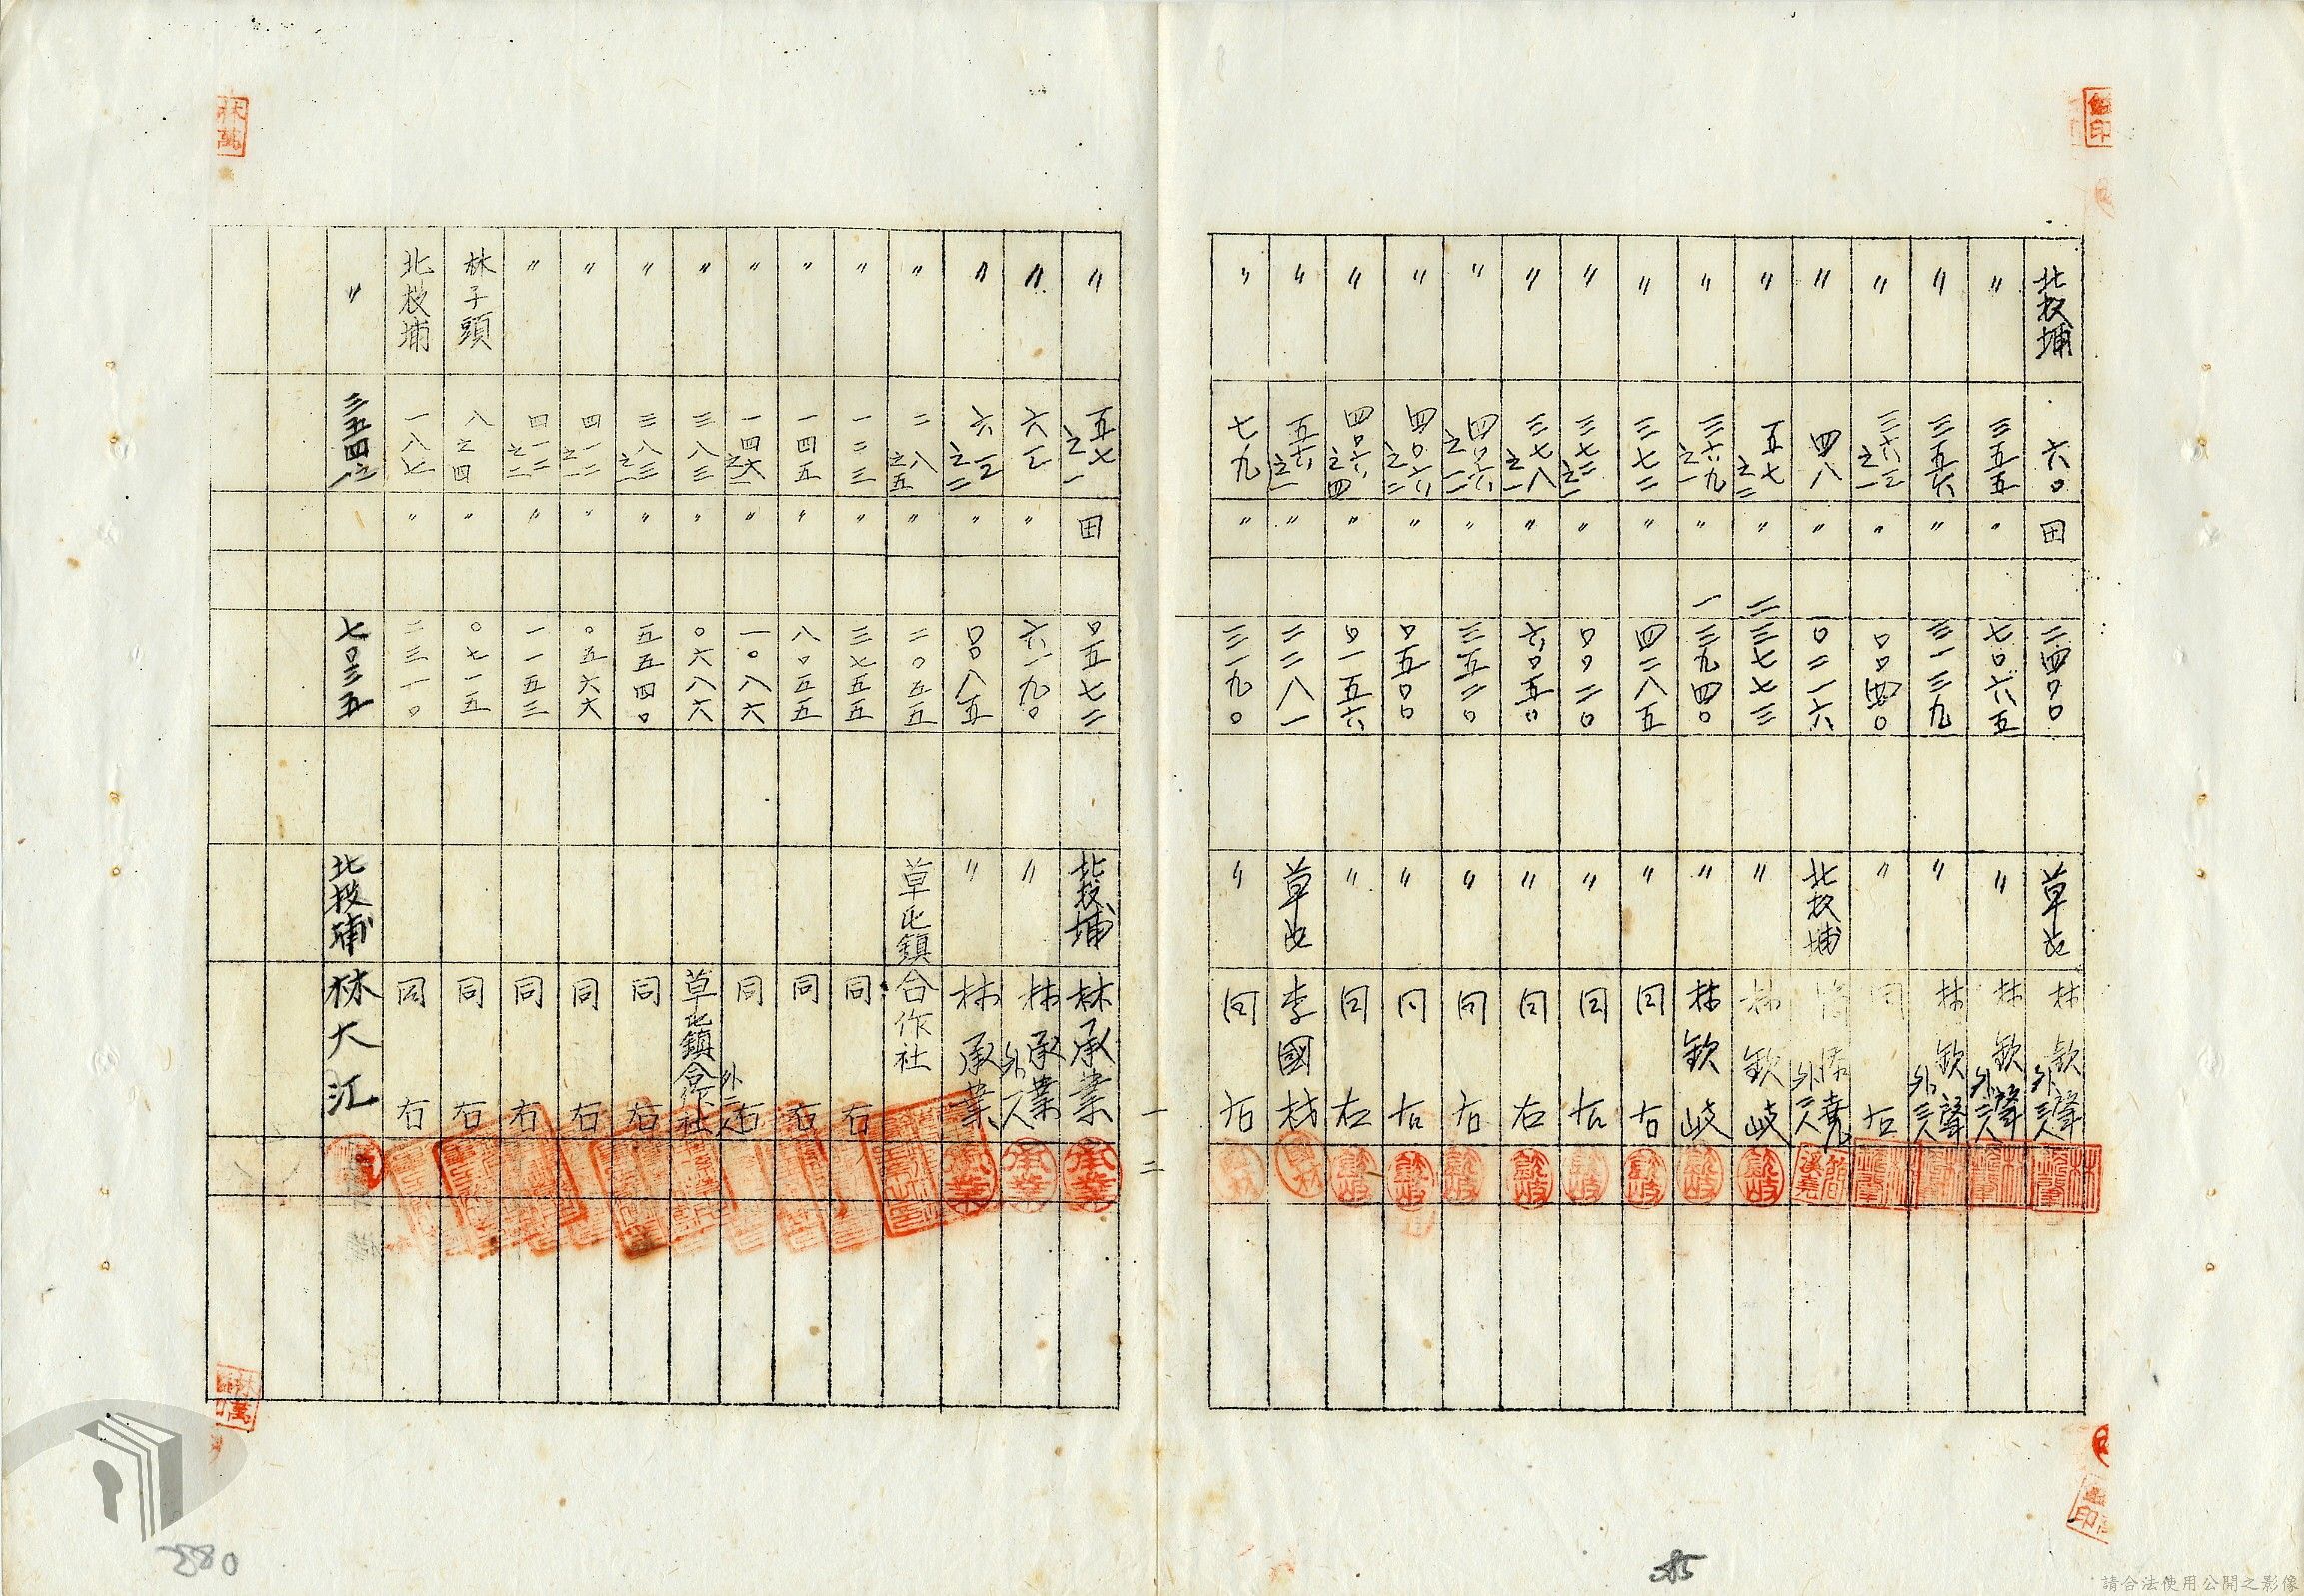 北投埔 六〇 田 二四〇〇 草屯 林欽聲外三人
〃 三五五 〃 七〇六五 〃 林欽聲外三人
〃 三五六 〃 三一三九 〃 林欽聲外三人
〃 三六三之一 〃 〇〇四〇 〃 同右
〃 四八 〃 〇二一六 北投埔 外三人
〃 五七之二 〃 二三七七三 〃 林欽岐
〃 三六九之一 〃 一三九四〇 〃 林欽岐
〃 三七二 〃 四二八五 〃 同右
〃 三七二之二 〃 〇〇二〇 〃 同右
〃 三七八之一 〃 六〇五〇 〃 同右
〃 四〇六之一 〃 三五二〇 〃 同右
〃 四〇六之二 〃 〇五〇〇 〃 同右
〃 四〇六之四 〃 〇一五六 〃 同右
〃 五六之一 〃 二二八一 草屯 李國材
〃 七九 〃 三一九〇 〃 同右
一二
〃 五七之一 田 〇五七二 北投埔 林承業
〃 六一 〃 六一九〇 〃 林承業外一人
〃 六一之二 〃 〇〇八五 〃 林承業
〃 二八之五 〃 二〇五五 草屯鎮合作社
〃 一二三 〃 三七五五 同右
〃 一四五 〃 八〇五五 同右
〃 一四六之一 〃 一〇八六 同右外二人
〃 三八三 〃 〇六八六 草屯鎮合作社
〃 三八三之一 〃 五五四〇 同右
〃 四一二之一 〃 〇五六六 同右
〃 四一二之二 〃 一一五三 同右
林子頭 八之四 〃 〇七一五 同右
北投埔 一八七 〃 二三一〇 同右
〃 三五四之一 七〇三五 北投埔 林大江
280
請合法使用公開之影像